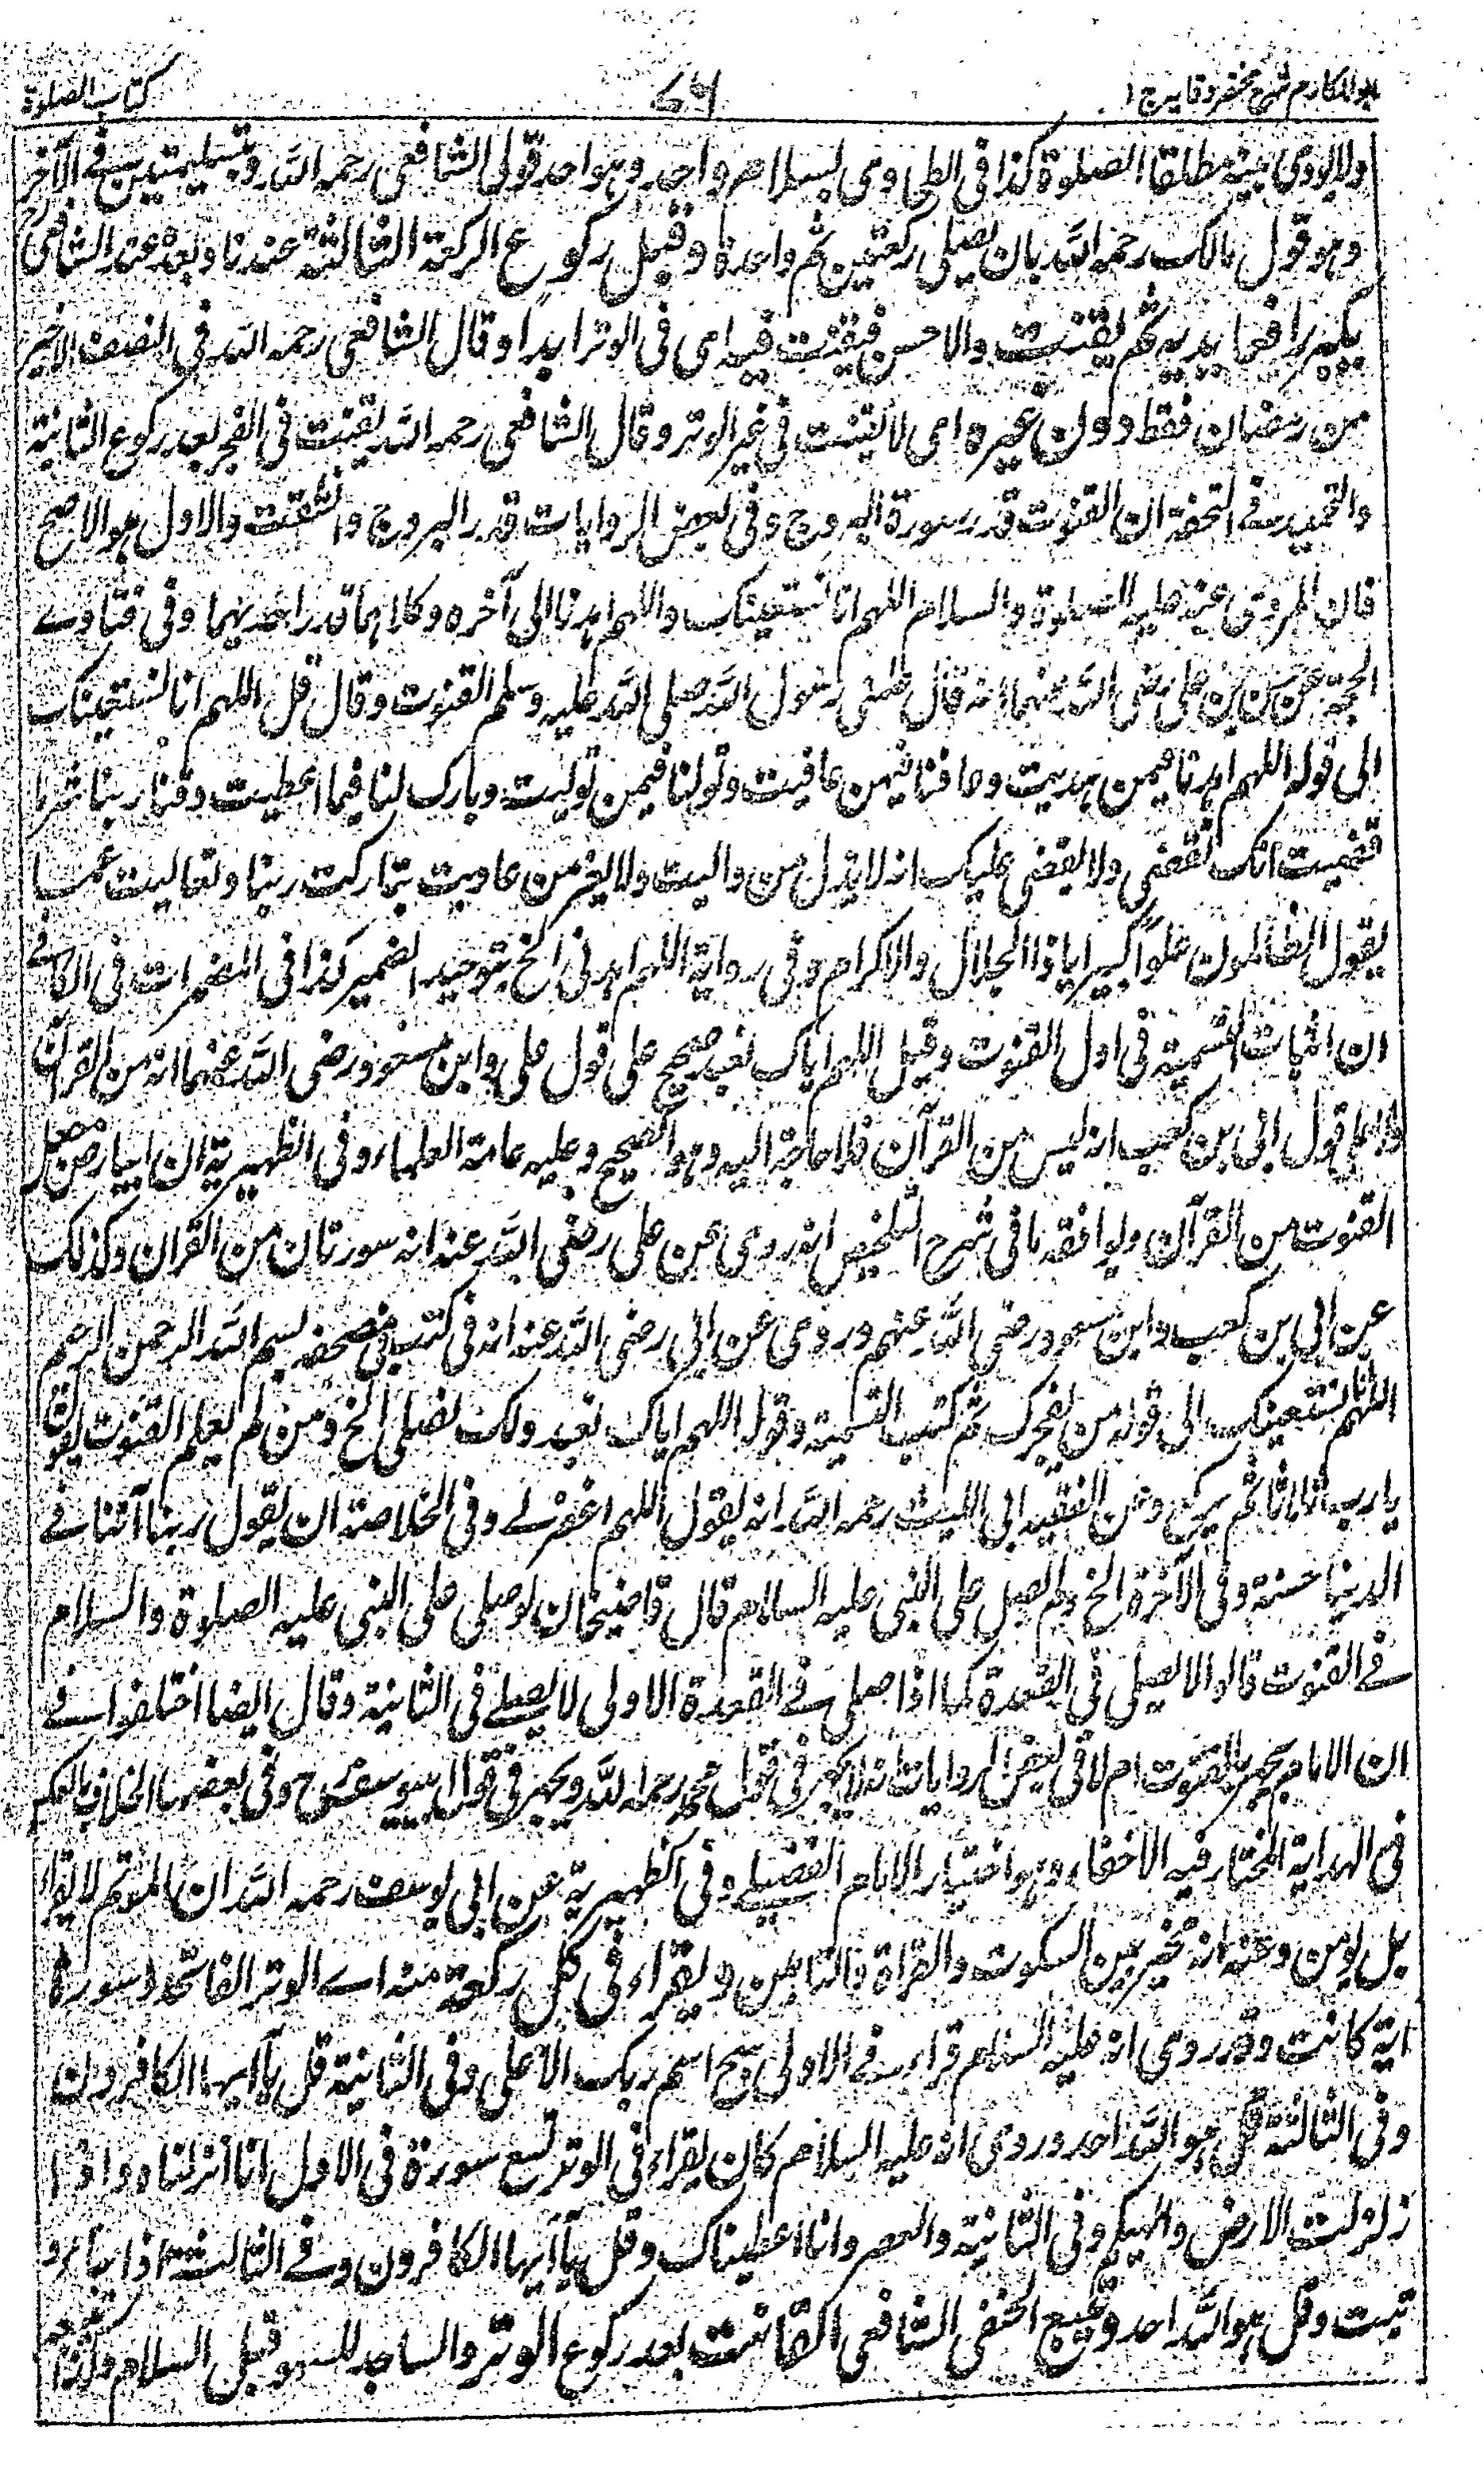 ابو المکارم شرح مختصر وقایہ ج ۱
۷۶
کتاب الصلوة
ولا یودی بنیة مطلقا الصلوة کذا فی الطحاوی بسلام واحد وہو احد قولی الشافعی رحمہ اللہ وبتسلیمتین فی الآخر
وہو قول مالک رحمہ اللہ بان یصلی رکعتین ثم واحدة وقبل رکوع الرکعة الثالثة عندنا وبعدہ عند الشافعی رح
یکبر رافعا یدیہ ثم یقنت والاحسن فیقنت فیہ ای فی الوتر ابدا وقال الشافعی رحمہ اللہ فی النصف الاخیر
من رمضان فقط دون غیرہ ای لا یقنت فی غیر الوتر وقال الشافعی رحمہ اللہ یقنت فی الفجر بعد رکوع الثانیة
والقید فی التحفة ان القنوت قدر سورة البروج وفی بعض الروایات قدر البروج وانشقت والاول ہو الاصح
فان المروی عنہ علیہ الصلوة والسلام اللہم انا نستعینک واللہم اہدنا الی آخرہ وکلاہما قدر احدیہما وفی فتاوے
الحجة عن حسن بن علی رضی اللہ عنہما انہ قال علمنی رسول اللہ صلی اللہ علیہ وسلم القنوت وقال قل اللہم انا نستعینک
الی قولہ اللہم اہدنا فیمن ہدیت وعافنا فیمن عافیت وتولنا فیمن تولیت وبارک لنا فیما اعطیت وقنا ربنا شر ما
قضیت انک تقضی ولا یقضی علیک انہ لا یذل من والیت ولا یعز من عادیت تبارکت ربنا وتعالیت عما
یقول الظالمون علوا کبیرا یا ذا الجلال والاکرام وفی روایة اللہم اہدنی الخ بتوحید الضمیر کذا فی المضمرات فی الکافے
ان اثبات التسمیة فی اول القنوت وقیل اللہم ایاک نعبد صحیح علی قول علی وابن مسعود رضی اللہ عنہما انہ من القرآن
واما علی قول ابی بن کعب انہ لیس من القرآن فلا حاجة الیہ وہو الصحیح وعلیہ عامة العلماء وفی الظہیریة ان
القنوت من القرآن ویوافقہ ما فی شرح التلخیص انہ روی عن علی رضی اللہ عنہ انہ سورتان من القرآن وکذلک
عن ابی بن کعب وابن مسعود رضی اللہ عنہم وروی عن ابی رضی اللہ عنہ انہ فی کتب فی مصحفہ بسم اللہ الرحمن الرحیم
اللہم انا نستعینک الی قولہ من یفجرک ثم کتب التسمیة وقولہ اللہم ایاک نعبد ولک نصلی الخ ومن لم یعلم القنوت یقول
یا رب ثلاثا ثم یرکع وعن الفقیہ ابی اللیث رحمہ اللہ انہ یقول اللہم اغفر لے وفی الخلاصة ان یقول ربنا آتنا فے
الدنیا حسنة وفی الآخرة الخ ولم یصل علی النبی علیہ السلام قال قاضیخان لو صلی علی النبی علیہ الصلوة والسلام
فے القنوت قالوا لا یصلی فی القعدة کما اذا صلی فے القعدة الاولی لا یصلے فی الثانیة وقال ایضا اختلفوا فے
ان الامام یجہر بالقنوت ام لا فی بعض الروایات انہ لا یجہر فی قول محمد رحمہ اللہ ویجہر فی قول ابی یوسف رح وفی بعضہا الخلاف بالعکس
فی الہدایة المختار فیہ الاخفاء وہو اختیار الامام الفضیلے وفی الظہیریة عن ابی یوسف رحمہ اللہ ان الموتم لا یقرأ
بل یومن وعنہ انہ مخیر بین السکوت والقراة والتامین ویقرا فی کل رکعة منہ اے الوتر الفاتحة وسورة
ایة کانت وقد روی انہ علیہ السلام قراء فے الاولی سبح اسم ربک الاعلی وفی الثانیة قل یا ایہا الکافرون
وفی الثالثة قل ہو اللہ احد وروی انہ علیہ السلام کان یقراء فی الوتر تسع سورة فی الاول انا انزلناہ واذا
زلزلت الارض والہیکم وفی الثانیة والعصر وانا اعطیناک وقل یا ایہا الکافرون وفے الثالثة اذا جاء و
تبت وقل ہو اللہ احد ویتبع الحنفی الشافعی القانت بعد رکوع الوتر والساجد للسہو قبل السلام